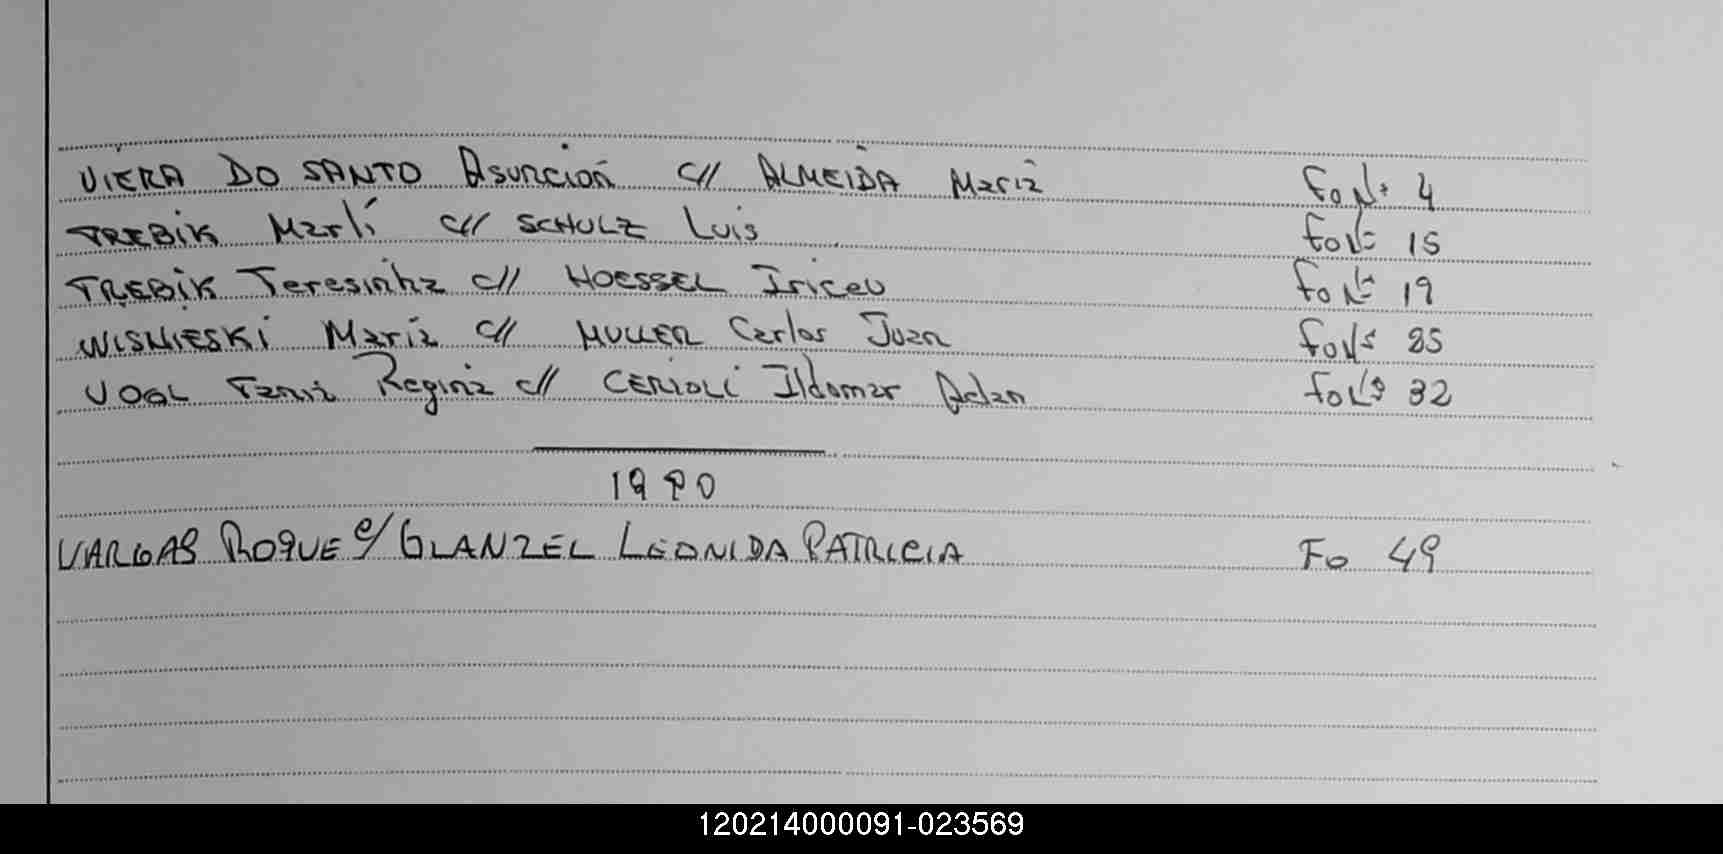 VIERA DO SANTO Asuncion c// ALMEIDA Maria Fo Nº 4
TREBIK Marlí c// SCHULZ Luis Fo Nº 15
TREBIK Teresinha c// HOESSEL Iriceu Fo Nº 19
WISNIESKI Maria c// MULLER Carlos Juan Fo Nº 25
VOGL Tania Regina c// CERIOLI Ildomar Adan Fo Nº 32
1990
VARGAS ROQUE c/ GLANZEL LEONIDA PATRICIA Fo 49
120214000091-023569